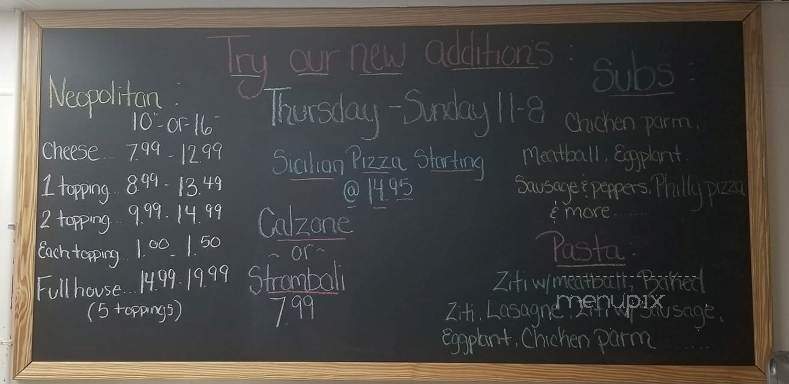 Try our new additions :
Neopolitan :
10"-or-16"
Cheese... 7.99 - 12.99
1 topping.. 8.49 - 13.49
2 topping... 9.99 - 14.99
Each topping 1.00 - 1.50
Full house... 14.99 - 19.99
(5 toppings)
Thursday - Sunday 11-8
Sicilian Pizza Starting
@ 14.95
Calzone
~ or ~
Stromboli
7.99
Subs :
Chicken parm,
Meatball, Eggplant
Sausage & peppers, Philly pizza
& more......
Pasta :
Ziti w/ meatball, Baked
Ziti, Lasagne, Ziti w/ Sausage,
Eggplant, Chicken parm........
menupix